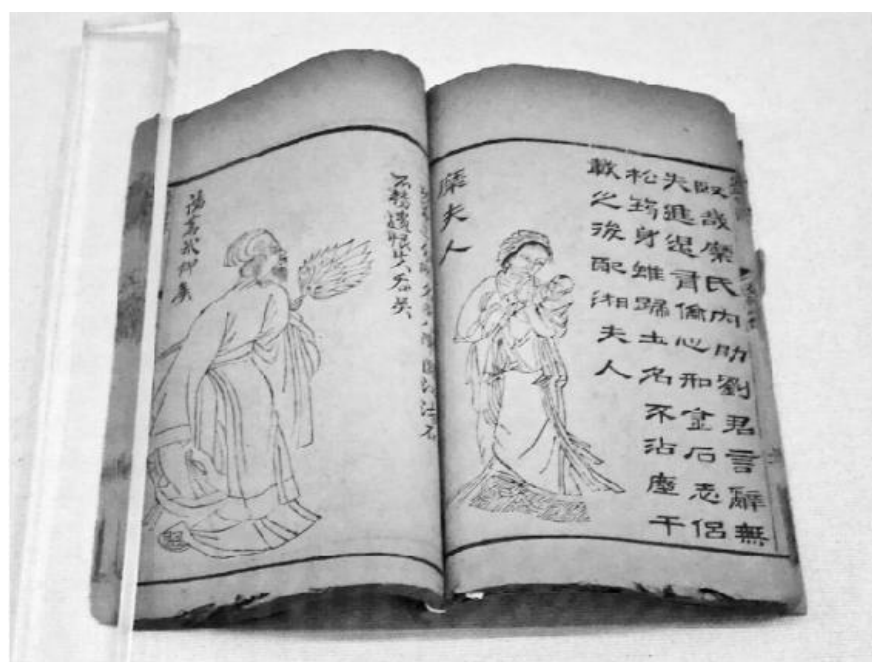 賢哉糜氏內助劉君言辭無
失進退有倫心如金石志侶
松筠身雖歸土名不沾塵千
載之後配湘夫人
糜夫人
不轉遺恨失吞吳
諸葛武鄉侯